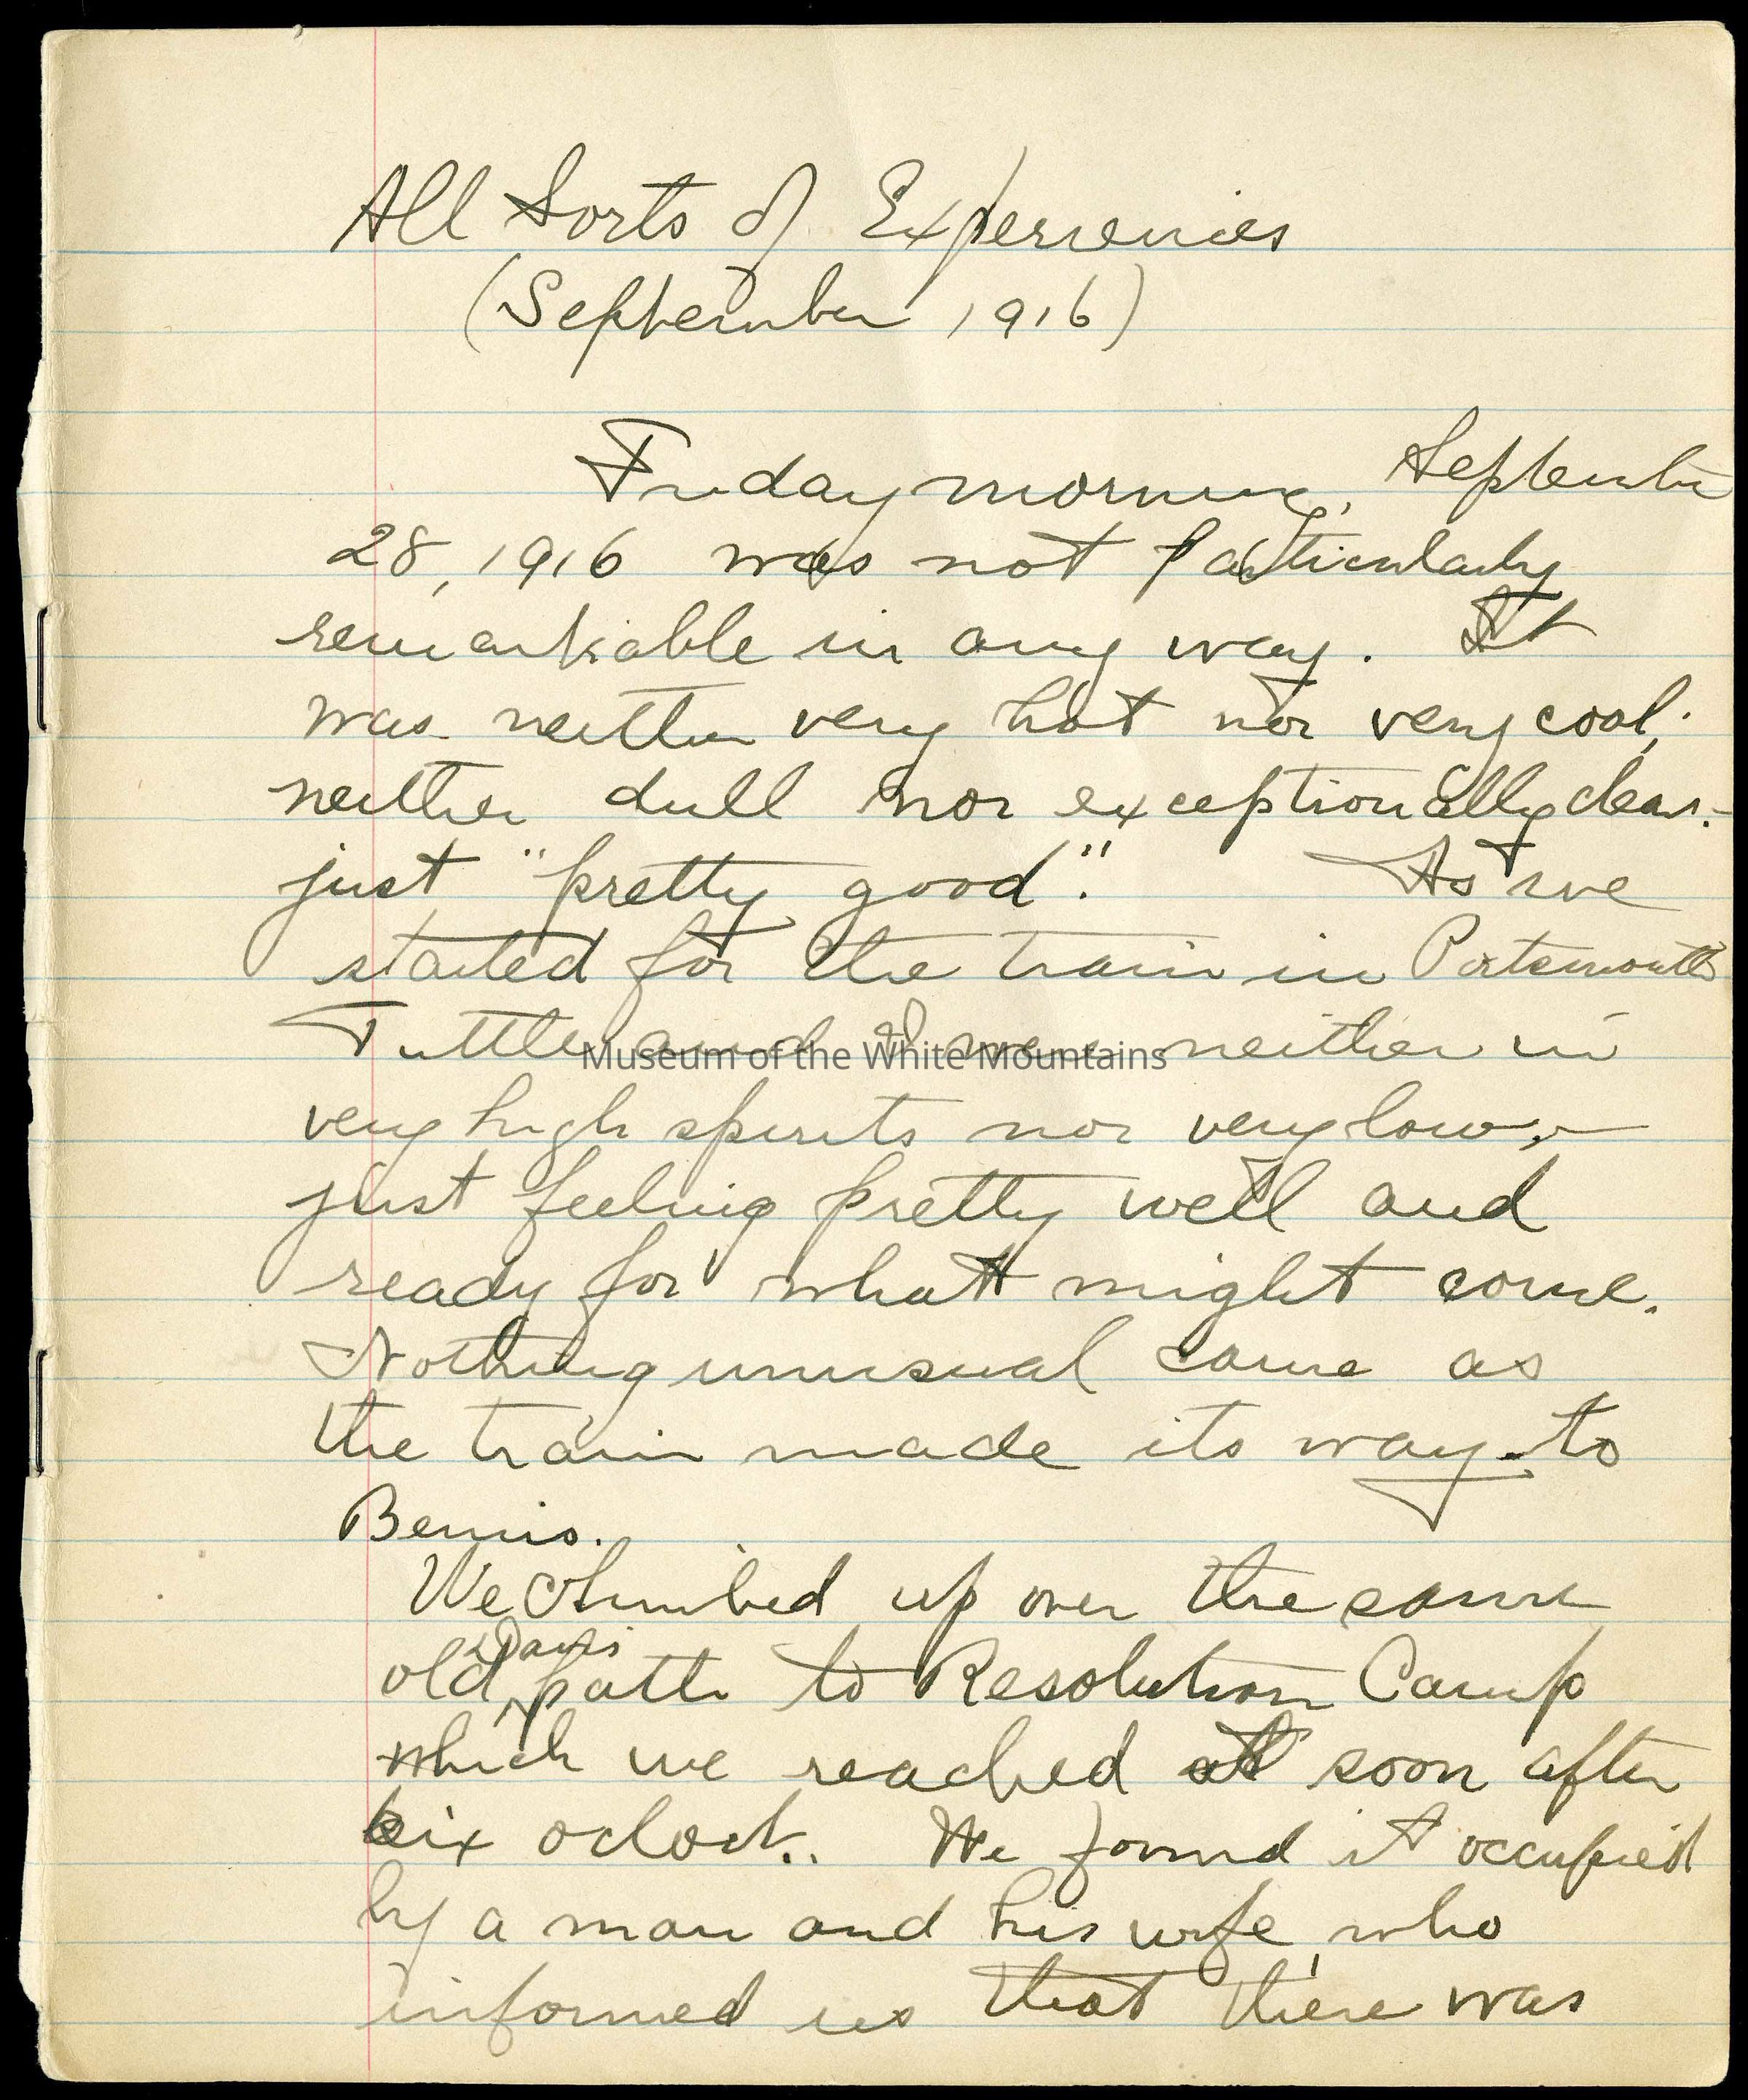 All Sorts of Experiences
(September 1916)
Friday morning, September
28, 1916 was not particularly
remarkable in any way. It
was neither very hot nor very cool;
neither dull nor exceptionally clear:-
just "pretty good". As we
started for the train in Portsmouth
Tuttle and I were neither in
Museum of the White Mountains
very high spirits nor very low,-
just feeling pretty well and
ready for what might come.
Nothing unusual came as
the train made its way to
Bemis.
We climbed up over the same
Davis
old path to Resolution Camp
which we reached at soon after
six oclock.. We found it occupied
by a man and his wife, who
informed us that there was